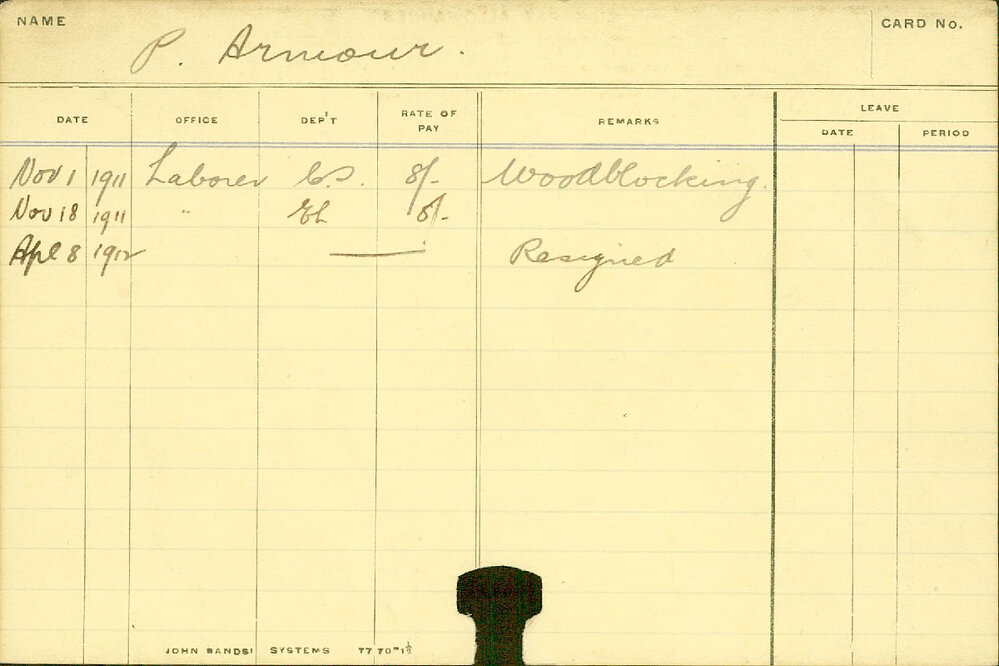 NAME P. Armour. CARD No.
LEAVE
DATE OFFICE DEP'T RATE OF PAY REMARKS DATE PERIOD
Nov 1 1911 Laborer C.S. 8/- Woodblocking.
Nov 18 1911 " 8/-
Apl 8 1912 — Resigned
JOHN SANDS' SYSTEMS